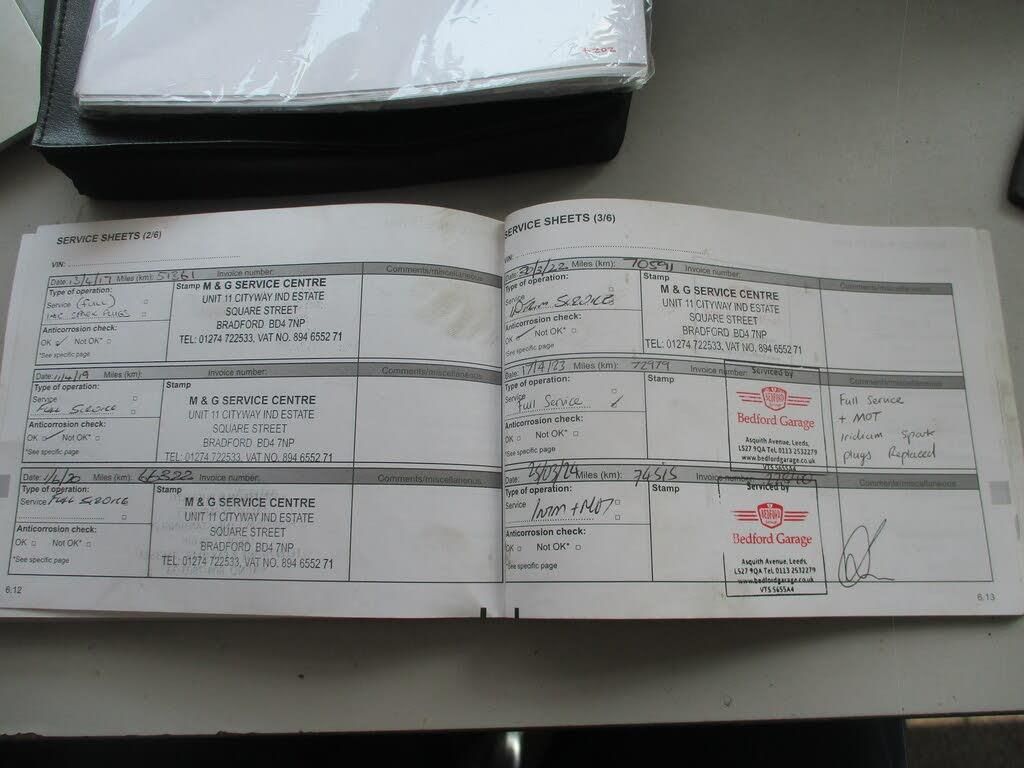 SERVICE SHEETS (2/6)
VIN:
Date: 13/4/17 Miles (km): 51261 Invoice number:
Comments/miscellaneous
Type of operation:
Service (FULL)
INC SPARK PLUGS
Anticorrosion check:
OK Not OK*
*See specific page
Stamp M & G SERVICE CENTRE
UNIT 11 CITYWAY IND ESTATE
SQUARE STREET
BRADFORD BD4 7NP
TEL: 01274 722533, VAT NO. 894 6552 71
Date: 11/4/19 Miles (km): Invoice number:
Comments/miscellaneous
Type of operation:
Service
FULL SERVICE
Anticorrosion check:
OK Not OK*
*See specific page
Stamp
M & G SERVICE CENTRE
UNIT 11 CITYWAY IND ESTATE
SQUARE STREET
BRADFORD BD4 7NP
TEL: 01274 722533, VAT NO. 894 6552 71
Date: Miles (km): 66322 Invoice number:
Comments/miscellaneous
Type of operation:
Service FULL SERVICE
Anticorrosion check:
OK Not OK*
*See specific page
Stamp
M & G SERVICE CENTRE
UNIT 11 CITYWAY IND ESTATE
SQUARE STREET
BRADFORD BD4 7NP
TEL: 01274 722533, VAT NO. 894 6552 71
6.12
SERVICE SHEETS (3/6)
VIN:
Date: 30/3/22 Miles (km): 70591 Invoice number:
Comments/miscellaneous
Type of operation:
Service
SERVICE
Anticorrosion check:
OK Not OK*
*See specific page
Stamp
M & G SERVICE CENTRE
UNIT 11 CITYWAY IND ESTATE
SQUARE STREET
BRADFORD BD4 7NP
TEL: 01274 722533, VAT NO. 894 6552 71
Date: 17/4/23 Miles (km): 72979 Invoice number:
Comments/miscellaneous
Type of operation:
Service
Full Service
Anticorrosion check:
OK Not OK*
*See specific page
Stamp
Serviced by
BEDFORD
Bedford Garage
Asquith Avenue, Leeds,
LS27 9QA Tel 0113 2532279
www.bedfordgarage.co.uk
VTS 5655A4
Full Service
+ MOT
Iridium Spark
plugs Replaced
Date: 25/03/24 Miles (km): 74515 Invoice number:
Comments/miscellaneous
Type of operation:
Service
+ MOT
Anticorrosion check:
OK Not OK*
*See specific page
Stamp
Serviced by
BEDFORD
Bedford Garage
Asquith Avenue, Leeds,
LS27 9QA Tel 0113 2532279
www.bedfordgarage.co.uk
VTS 5655A4
6.13